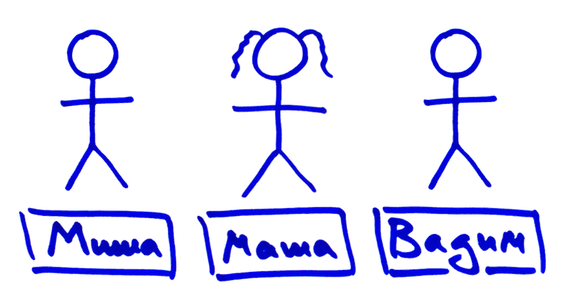 Миша Маша Вадим